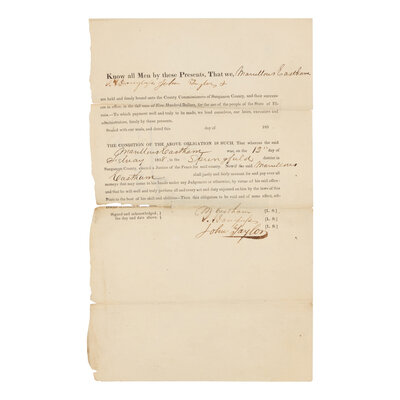 Know all Men by these Presents, That we, Marvellous Eastham
John Taylor &
are held and firmly bound unto the County Commissioners of Sangamon County, and their successors
in office, in the full sum of Five Hundred Dollars, for the use of the people of the State of Illinois
—To which payment well and truly to be made, we bind ourselves, our heirs, executors and
administrators, firmly by these presents.
Sealed with our seals, and dated this day of 183
THE CONDITION OF THE ABOVE OBLIGATION IS SUCH, That whereas the said
Marvellous Eastham was, on the 12 day of
in Springfield district in
Sangamon County, elected a Justice of the Peace for said county. Now if the said Marvellous
Eastham shall justly and fairly account for and pay over all
moneys that may come to his hands under any Judgement or otherwise, by virtue of his said office;
and that he will well and truly perform all and every act and duty enjoined on him by the laws of this
State to the best of his skill and abilities—Then this obligation to be void and of none effect,
Signed and acknowledged,
the day and date above.
M Eastham [L. S.]
[L. S.]
John Taylor [L. S.]